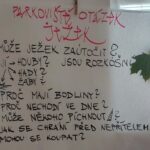 PARKOVIŠTĚ OTÁZEK
JEŽEK
MŮŽE JEŽEK ZAÚTOČIT?
JÍ HOUBY? JSOU ROZKOŠNÍ
HADY?
ŽÁBY?
PROČ MAJÍ BODLINY?
PROČ NECHODÍ VE DNE?
MŮŽE NĚKOHO PÍCHNOUT?
JAK SE CHRÁNÍ PŘED NEPŘÍTELEM
MOHOU SE KOUPAT?